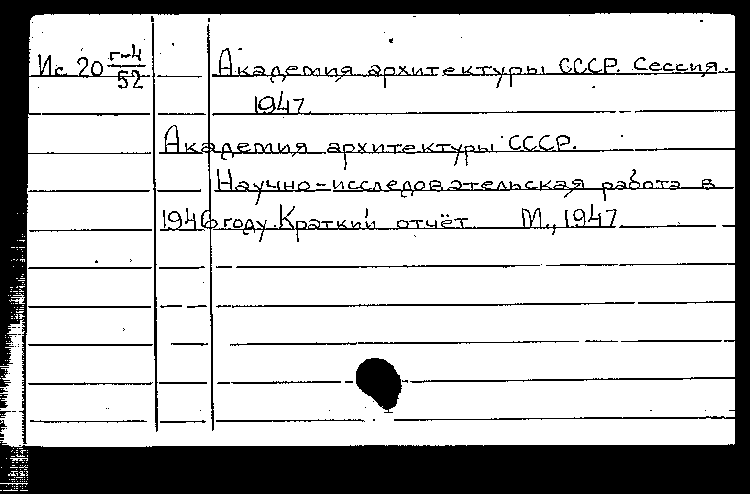 Ис 20 г-4/52 Академия архитектуры СССР. Сессия.
1947
Академия архитектуры СССР.
Научно-исследовательская работа в
1946 году. Краткий отчёт М., 1947